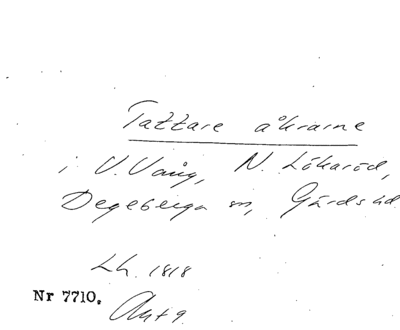 Tattare åkrarne
i V. Vång, N. Lökaröd,
Degeberga sn, Gärds hd
Lh. 1818
Nr 7710.